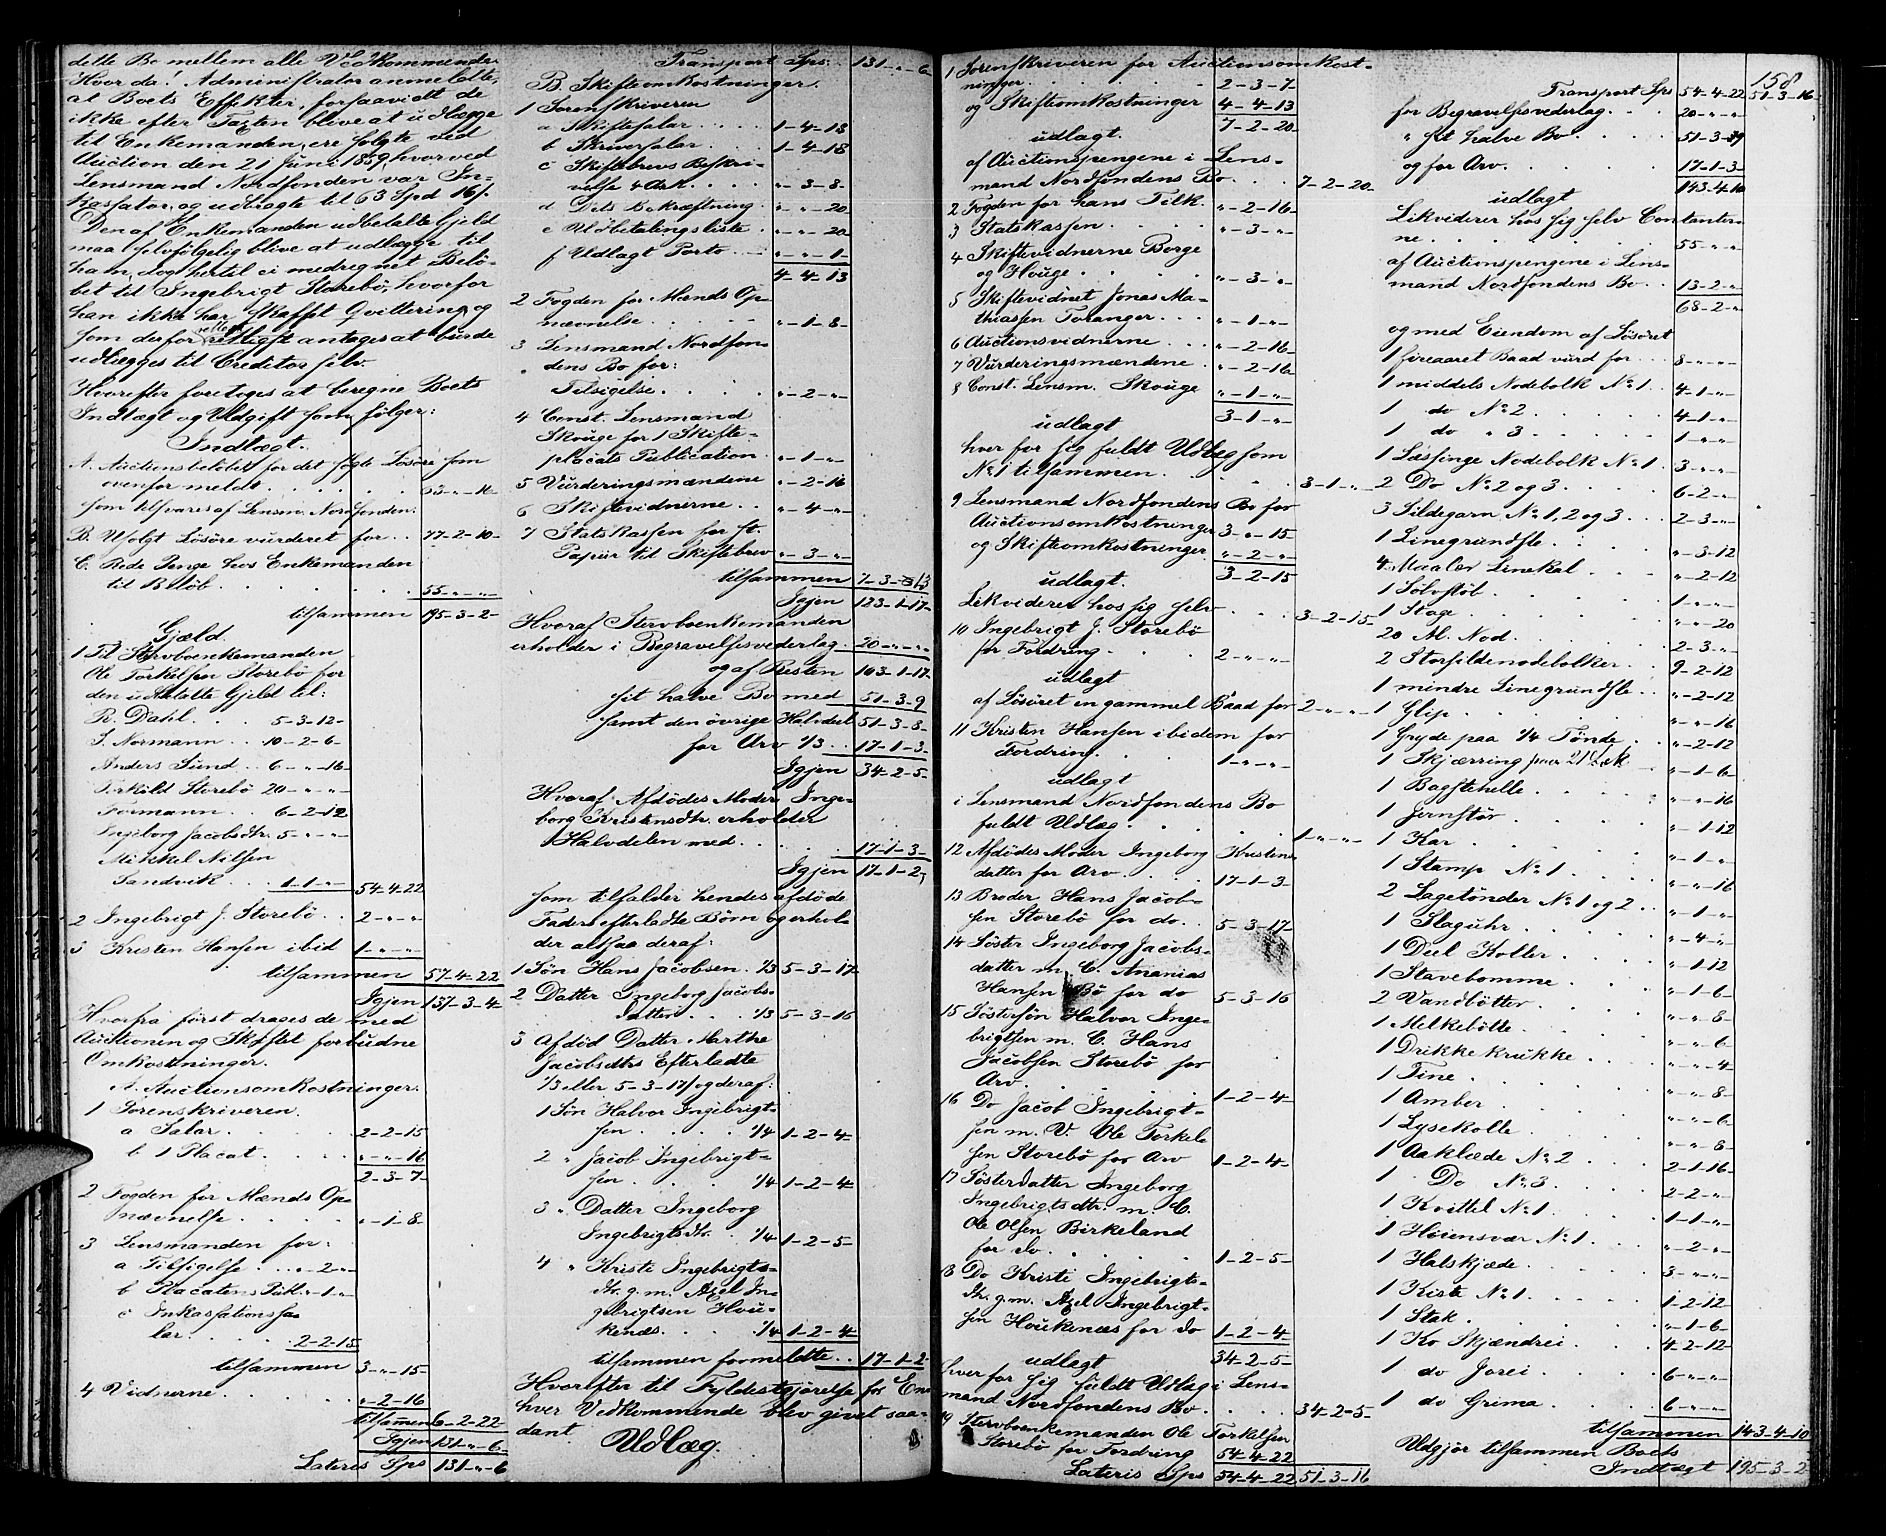 dette Bo mellem alle Vedkommende.
Hvor da! Administrator anmeldte,
at Boets Effekter, forsaavidt de
ikke efter Taxten blive at udlægge
til Enkemanden, ere solgte ved
Auction den 21 Juni 1859, hvorved
Lensmand Nordfonden var In-
kassator, og udbragte til 63 Spd 16 s.
Den af Enkemanden udbetalte Gjeld
maa selvfølgelig blive at udlægge til
ham, dog hertil ei medregnet Belø-
bet til Ingebrigt Storebö, hvorfor
han ikke har skaffet Qvittering, og
som derfor rettest antages at burde
udlægges til Creditor selv.
Hvorefter foretoges at beregne Boets
Indtægt og Udgift som følger:
Indtægt.
A. Auctionsbeløbet for det solgte Løsøre som
ovenfor meldt . . . 63-"-16
som tilsvares af Lensm. Nordfonden.
B. Usolgt Løsøre vurderet for . . 77-2-10-
C. Rede Penge hos Enkemanden
til Beløb . . . 55-"-"
tilsammen 195-3-2-
Gjæld.
1 Til Stervboenkemanden
Ole Torkelsen Storebö for
den udbetalte Gjeld til:
R. Dahl . . 5-3-12-
J. Normann . . 10-2-6-
Anders Sund . 6-"-16-
Torkild Storebö 20-"-"-
Formann . . 6-2-12
Ingeborg Jacobsdtr. 5-"-"-
Mikkel Nilsen
Sandvik . . 1-1-"- 54-4-22
2 Ingebrigt J. Storebö . . 2-"-"-
3 Kristen Hansen ibid 1-"-"-
tilsammen 57-4-22
Igjen 137-3-4-
Hvorfra først drages de med
Auctionen og Skiftet forbudne
Omkostninger.
A. Auctionsomkostninger.
1 Sorenskriveren.
a Salær . . . 2-2-15
b 1 Placat . . . "-"-16
2-3-7-
2 Fogden for Mænds Op-
nævnelse . . . "-1-8-
3 Lensmanden for:
a Tilsigelse . . "-2-"-
b Placatens Publ. "-1-"-
c Inkassationssa-
lær . . . 2-2-15
tilsammen 3-"-15-
4 Vidnerne . . . "-2-16
tilsammen 6-2-22
Igjen 131-"-6-
Lateris Sps 131-"-6
Transport Sps. 131-"-6-
B. Skifteomkostninger.
1 Sorenskriveren
a Skiftesalær . . . 1-4-18
b Skriversalær . . 1-4-18
c Skiftebrevs Beskri-
velse 4 Ark . . . "-3-8-
d Dets Bekræftning "-"-20
e Udbetalingsliste "-"-20
f Udlagt Porto . . "-"-1-
4-4-13
2 Fogden for Mænds Op-
nævnelse . . . "-1-8-
3 Lensmand Nordfon-
dens Bo for:
Tilsigelse . . . "-2-"-
4 Const. Lensmand
Skouge for 1 Skifte-
placats Publication "-1-"-
5 Vurderingsmændene "-2-16
6 Skiftevidnerne . . "-4-"-
7 Statskassen for st.
Papiir til Skiftebrev "-3-"-
tilsammen 7-3-13
Igjen 123-1-17-
Hvoraf Stervboenkemanden
erholder i Begravelsesvederlag. 20-"-"-
og af Resten 103-1-17-
sit halve Bo med 51-3-9
samt den øvrige Halvdeel 51-3-8-
for Arv 1/3 . . 17-1-3-
Igjen 34-2-5-
Hvoraf Afdødes Moder Inge-
borg Kristensdtr. erholder
Halvdelen med . . . 17-1-3-
Igjen 17-1-2-
som tilfalder hendes afdøde
Faders efterladte Børn og erhol-
der altsaa deraf:
1 Søn Hans Jacobsen. 1/3 5-3-17
2 Datter Ingeborg Jacobs-
datter . . . 1/3 5-3-16
3 Afdød Datter Marthe
Jacobsdtrs Efterladte
1/3 eller 5-3-17 og deraf:
1 Søn Halvor Ingebrigt-
sen . . . 1/4 1-2-4-
2 " Jacob Ingebrigt-
sen . . . 1/4 1-2-4-
3 " Datter Ingeborg
Ingebrigtsdtr. . 1/4 1-2-5-
4 " Kristi Ingebrigts-
dtr. g. m. Axel In-
gebrigtsen Hou-
kenæs . . . 1/4 1-2-4-
tilsammen formeldte . . 17-1-2-
Hvorefter til Fyldestgjørelse for En-
hver Vedkommende blev givet saa-
dant
Udlæg.
1 Sorenskriveren for Auctionsomkost-
ninger . . . 2-3-7-
og Skifteomkostninger 4-4-13
7-2-20-
udlagt.
af Auctionspengene i Lens-
mand Nordfondens Bo . . . 7-2-20-
2 Fogden for hans Tilk. "-2-16-
3 Statskassen . . . "-3-"-
4 Skiftevidnerne Borge
og Houge . . . "-3-"-
5 Skiftevidnet Jonas Ma-
thiassen Toranger . . . "-1-"-
6 Auctionsvidnerne . . . "-2-16-
7 Vurderingsmændene . "-2-16
8 Const. Lensm. Skouge "-1-"-
3-1-"-
udlagt
hver for sig fuldt Udlæg som
No 1 tilsammen . . . 3-1-"-
9 Lensmand Nordfondens Bo for
Auctionsomkostninger 3-"-15-
og Skifteomkostninger "-2-"-
3-2-15-
udlagt.
Likviderer hos sig selv . . 3-2-15-
10 Ingebrigt J. Storebö
for Fordring . . . 2-"-"-
udlagt
af Løsøret en gammel Baad for 2-"-"-
11 Kristen Hansen ibidem for
Fordring . . . 1-"-"-
udlagt
i Lensmand Nordfondens Bo
fuldt Udlæg . . . 1-"-"-
12 Afdødes Moder Ingeborg Kristens-
datter for Arv . . . 17-1-3-
13 Broder Hans Jacob-
sen Storebö for do. . 5-3-17-
14 Søster Ingeborg Jacobs-
datter m. C. Ananias
Hansen Bö for do 5-3-16
15 Søstersøn Halvor Inge-
brigtsen m. C. Hans
Jacobsen Storebö for
Arv . . . 1-2-4-
16 Do Jacob Ingebrigt-
sen m. V. Ole Torkel-
sen Storebö for Arv 1-2-4-
17 Søsterdatter Ingeborg
Ingebrigtsdtr. m. C.
Ole Olsen Birkeland
for do. . . . 1-2-5-
18 Do Kristi Ingebrigts-
dtr. g. m. Axel Ingebrigt-
sen Houkenæs for do 1-2-4-
34-2-5-
udlagt
hver for sig fuldt Udlæg i Lens-
mand Nordfondens Bo . . . 34-2-5-
19 Stervboenkemanden Ole Torkelsen
Storebö for Fordring 54-4-22
Lateris Sps 54-4-22 51-3-16
158
Transport Sps 54-4-22 51-3-16
for Begravelsesvederlag . . . 20-"-"-
" sit halve Bo . . . 51-3-9
og for Arv . . . 17-1-3-
143-4-10
udlagt
Likviderer hos sig selv Contanter-
ne . . . 55-"-"
af Auctionspengene i Lens-
mand Nordfondens Bo . . 13-2-"
68-2-"
og med Eiendom af Løsøret
1 fireaaret Baad vurd for . . . 8-"-"-
1 middels Nodebolk No 1 . 4-1-"-
1 do No 2 . . . 4-1-"-
1 do " 3 . . . 1-"-"-
1 Læssinge Nodebolk No 1 . 3-"-"-
2 Do No 2 og 3 . . . 6-2-"-
3 Sildegarn No 1, 2 og 3 . . 2-3-"-
1 Linegrundsle . . . "-3-12
4 Maaler Linekal . . . "-2-12
1 Sølvstøb . . . 1-"-"-
1 Stage . . . "-"-20
20 Al. Nod . . . 2-3-"-
2 Storsildenodebolker . . 9-2-12
1 mindre Linegrundsle . . "-2-12
1 Glip . . . "-"-16
1 Gryde paa 1/4 Tønde . . "-2-12
1 Skjærring "-1-6-
1 Bagstehelle . . . "-"-16
1 Jernstør . . . "-1-12
1 Kar . . . "-1-"-
1 Stamp No 1 . . . "-"-16
2 Lagetönder No 1 og 2 . . "-1-"-
1 Slaguhr . . . "-4-"-
1 Deel Koller . . . "-1-12
1 Stavebomme . . . "-1-6-
2 Vandbötter . . . "-"-8-
1 Melkebötte . . . "-"-6-
1 Drikkekrukke . . . "-"-4
1 Tine . . . "-"-8-
1 Amber . . . "-"-6-
1 Lysekolle . . . "-"-8-
1 Aaklæde No 2 . . . 2-1-16
1 Do No 3 . . . 2-2-"-
1 Kvittel No 1 . . . 1-1-"-
1 Høiensvær No 1 . . . "-2-"-
1 Halskjæde . . . 3-"-"-
1 Kiste No 1 . . . 1-2-12
1 Stak . . . "-1-6-
1 Ko Skjændrei . . . 4-2-12
1 do Jorei . . . 6-"-"-
1 do Grima . . . 6-"-"-
tilsammen 143-4-10
Udgjør tilsammen Boets
Indtægt 195-3-2